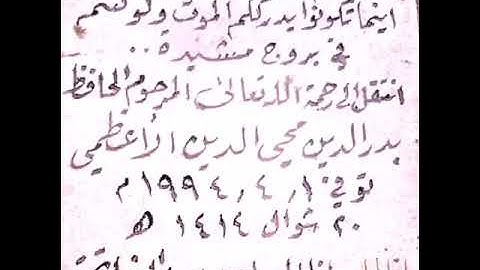 اينما تكونوا يدرككم الموت ولو كنتم
في بروج مشيدة ..
انتقل الى رحمة الله تعالى المرحوم الحافظ
بدر الدين محيي الدين الأعظمي
توفي ١ / ٤ / ١٩٩٤ م
٢٠ شوال ١٤١٤ هـ